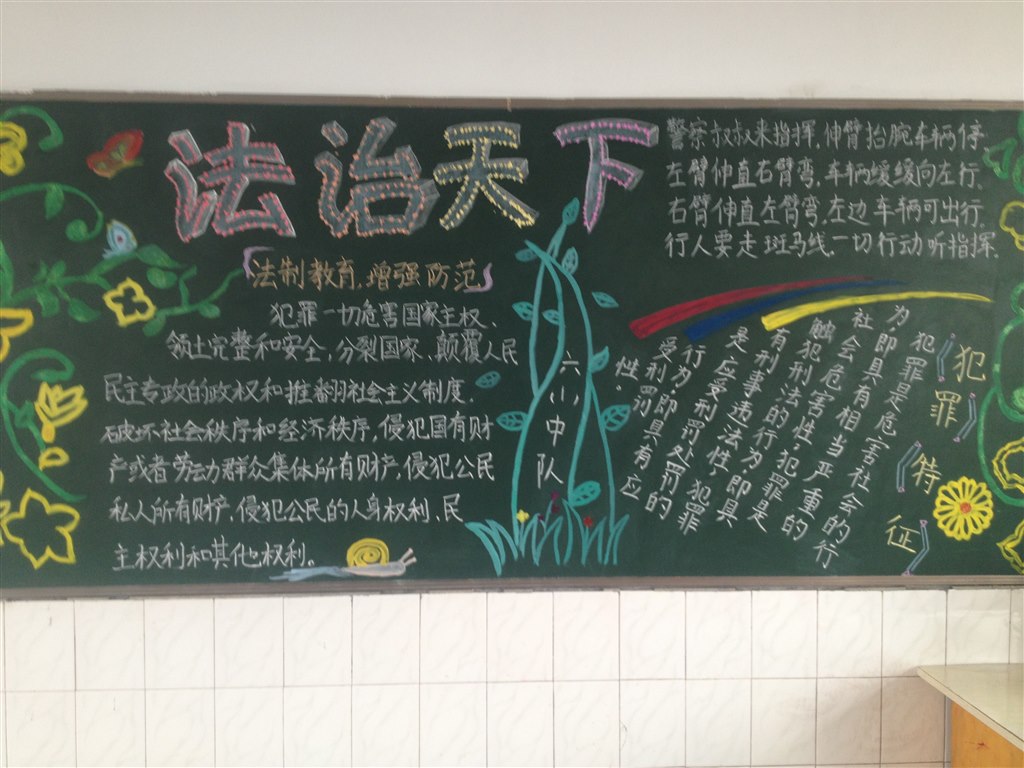 法治天下
法制教育,增强防范
犯罪一切危害国家主权、
领土完整和安全,分裂国家、颠覆人民
民主专政的政权和推翻社会主义制度.
破坏社会秩序和经济秩序,侵犯国有财
产或者劳动群众集体所有财产,侵犯公民
私人所有财产,侵犯公民的人身权利、民
主权利和其他权利。
六(1)中队
警察叔叔来指挥,伸臂抬腕车辆停.
左臂伸直右臂弯,车辆缓缓向左行.
右臂伸直左臂弯,左边车辆可出行.
行人要走斑马线.一切行动听指挥.
犯罪特征
犯罪是危害社会的行
为,即具有相当严重的
社会危害性,犯罪是
触犯刑法的行为即具
有刑事违法性,犯罪
是应受刑罚处罚的
行为,即具有应
受刑罚
性.